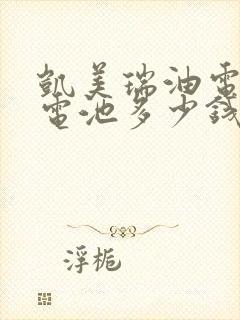 凱美瑞油電
電池多少錢
浮梔